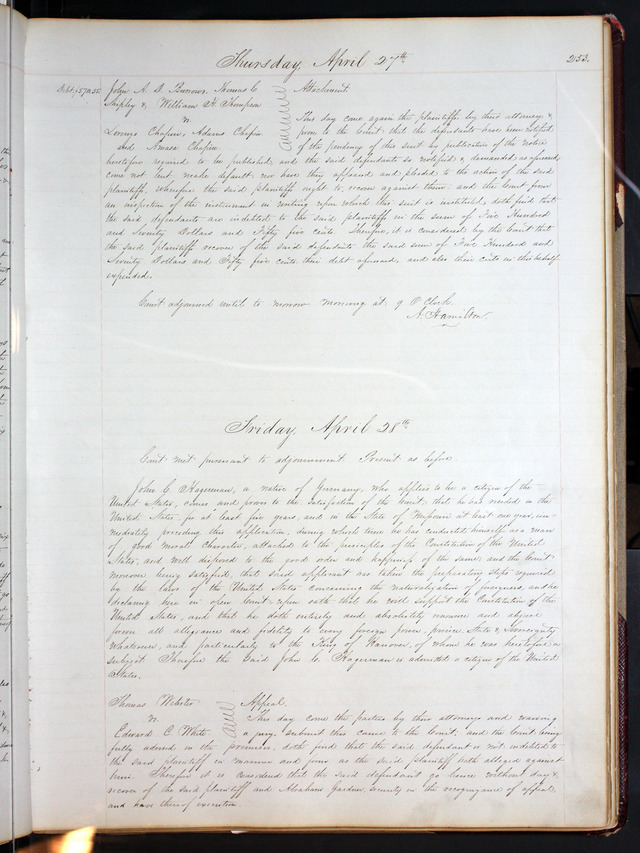 Thursday, April 27th 253.
Debt, $570.55. John A. D. Burrows, Thomas C. Attachment
Shipley &, William H. Thompson
vs. This day come again the plaintiffs by their attorney &
Lorenzo Chapin, Adams Chapin prove to the Court that the defendants have been notified
and Amasa Chapin. of the pendency of this suit by publication of the notice
heretofore required to be published, and the said defendants so notified, & demanded as aforesaid,
come not but make default, nor have they appeared and pleaded to the action of the said
plaintiffs, wherefore the said plaintiffs ought to recover against them: and the Court from
an inspection of the instrument in writing upon which this suit is instituted, doth find that
the said defendants are indebted to the said plaintiffs in the sum of Five Hundred
and Seventy Dollars and Fifty five cents. Therefore, it is considered by the Court that
the said plaintiffs recover of the said defendants the said sum of Five Hundred and
Seventy Dollars and Fifty five cents, their debt aforesaid, and also their costs in this behalf
expended.
Court adjourned until to morrow morning at 9 O'Clock.
A. Hamilton.
Friday, April 28th
Court met pursuant to adjournment. Present as before.
John C. Hagerman, a native of Germany, who applies to be a citizen of the
United States, comes and proves to the satisfaction of the Court, that he has resided in the
United States, for at least five years, and in the State of Missouri at least one year, im-
mediately preceding this application, during which time he has conducted himself as a man
of good moral character, attached to the principles of the Constitution of the United
States, and well disposed to the good order and happiness of the same; and the Court
moreover being satisfied, that said applicant has taken the preparatory steps required
by the laws of the United States concerning the naturalization of foreigners, and he
declaring here in open Court upon oath that he will support the Constitution of the
United States, and that he doth entirely and absolutely renounce and abjure
forever all allegiance and fidelity to every foreign power, prince, State & Sovereignty
whatsoever, and particularly to the King of Hanover, of whom he was heretofore a
subject. Therefore the said John C. Hagerman is admitted a citizen of the United
States.
Thomas Webster Appeal.
vs. This day come the parties by their attorneys and waiving
Edward C. White a jury, submit this cause to the Court, and the Court being
fully advised in the premises, doth find that the said defendant is not indebted to
the said plaintiff in manner and form as the said plaintiff hath alleged against
him. Therefore it is considered that the said defendant go hence without day &
recover of the said plaintiff and Abraham Gardner, security in the recognizance of appeal
and have thereof execution.